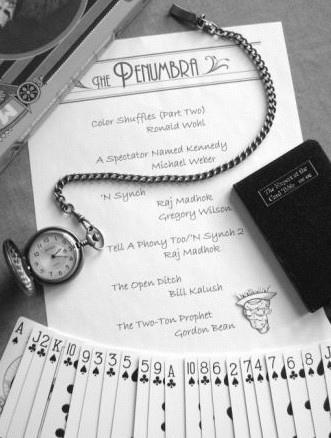 THE PENUMBRA
Color Shuffles (Part Two)
Ronald Wohl
A Spectator Named Kennedy
Michael Weber
'N Synch
Raj Madhok
Gregory Wilson
Tell A Phony Too/'N Synch 2
Raj Madhok
The Open Ditch
Bill Kalush
The Two-Ton Prophet
Gordon Bean
The Expert at the
Card Table
A J 2 K 10 9 3 3 5 5 9 A 10 8 6 2 7 4 7 6 8 J